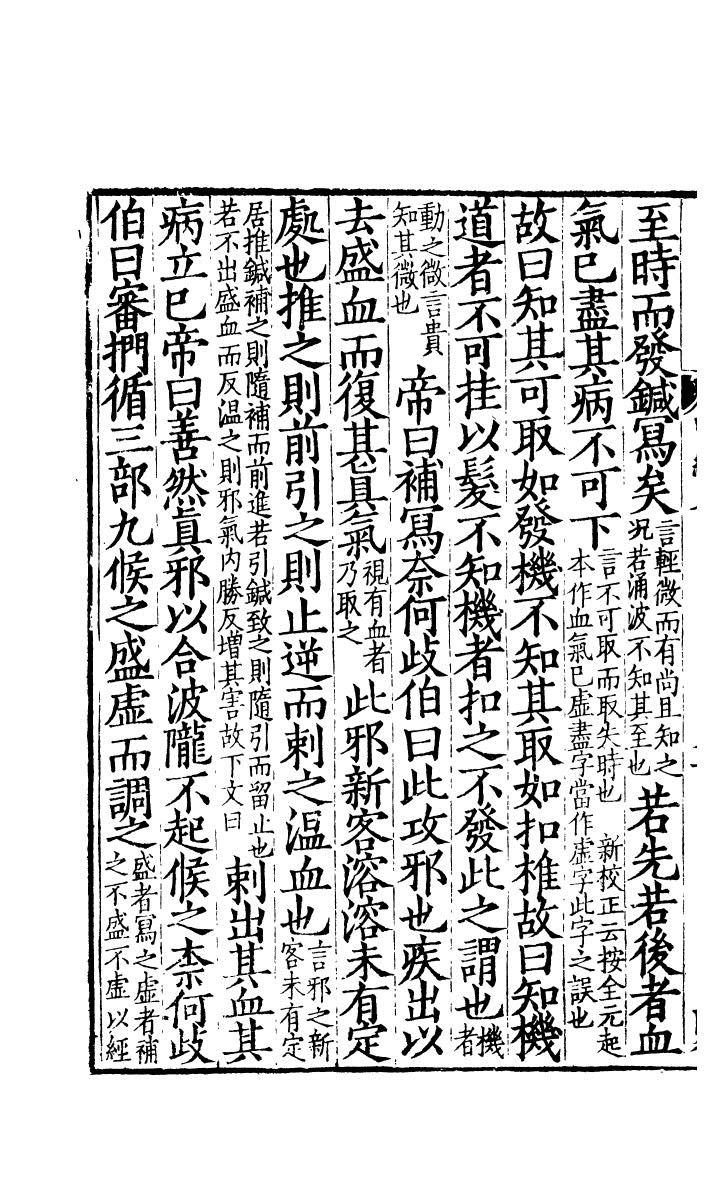 至時而發鍼寫矣言輕微而有尚且知之況若涌波不知其至也若先若後者血
氣已盡其病不可下言不可取而取失時也　新校正云按全元起本作血氣已虛盡字當作虛字此字之誤也
故曰知其可取如發機不知其取如扣椎故曰知機
道者不可挂以髮不知機者扣之不發此之謂也機者
動之微言貴知其微也帝曰補寫奈何歧伯曰此攻邪也疾出以
去盛血而復其真氣視有血者乃取之此邪新客溶溶未有定
處也推之則前引之則止逆而刺之温血也言邪之新客未有定
居推鍼補之則隨補而前進若引鍼致之則隨引而留止也若不出盛血而反温之則邪氣内勝反增其害故下文曰刺出其血其
病立已帝曰善然真邪以合波隴不起候之柰何歧
伯曰審捫循三部九候之盛虛而調之盛者寫之虛者補之不盛不虛以經